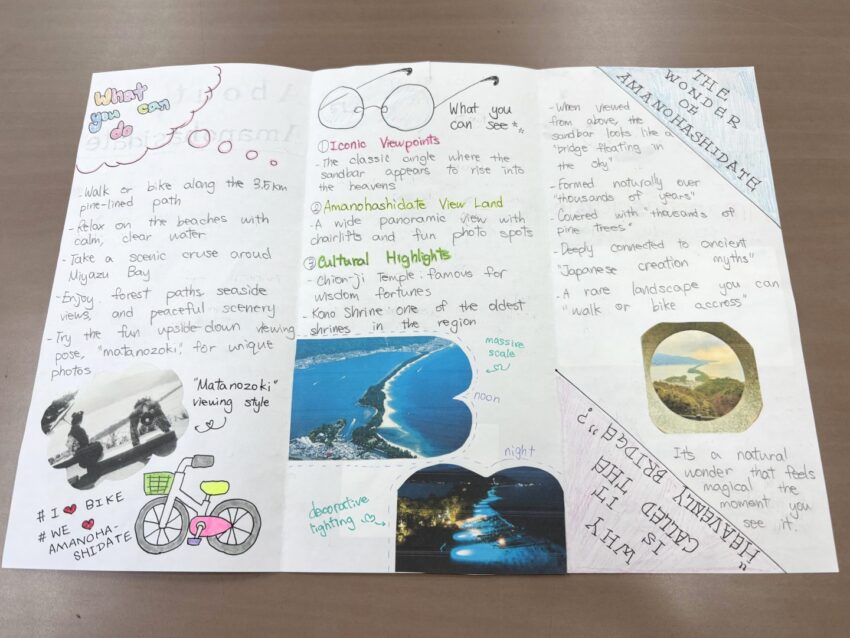 What
you can
do
- Walk or bike along the 3.5km
pine-lined path
- Relax on the beaches with
calm, clear water
- Take a scenic cruse aroud
Miyazu Bay
- Enjoy forest paths, seaside
views, and peaceful scenery
- Try the fun upside-down viewing
pose, "matanozoki," for unique
photos
"Matanozoki"
viewing style
# I ♥ BIKE
# WE ♥
AMANOHA-
SHIDATE
What you
can see**
① Iconic Viewpoints
- The classic angle where the
sandbar appears to rise into
the heavens
② Amanohashidate View Land
- A wide panoramic view with
chairlifts and fun photo spots
③ Cultural Highlights
- Chion-ji Temple : famous for
wisdom fortunes
- Kono Shrine : one of the oldest
shrines in the region
massive
scale
noon
night
decorative
lighting
THE
WONDER
OF
AMANOHASHIDATE
- When viewed
from above, the
sandbar looks like a
"bridge floating in
the sky"
- Formed naturally over
"thousands of years"
- Covered with "thousands of
pine trees"
- Deeply connected to ancient
"Japanese creation myths"
- A rare landscape you can
"walk or bike accross"
WHY
IS IT
CALLED THE
"HEAVENLY BRIDGE"?
It's a natural
wonder that feels
magical the
moment you
see it.
About
Amanohasidate